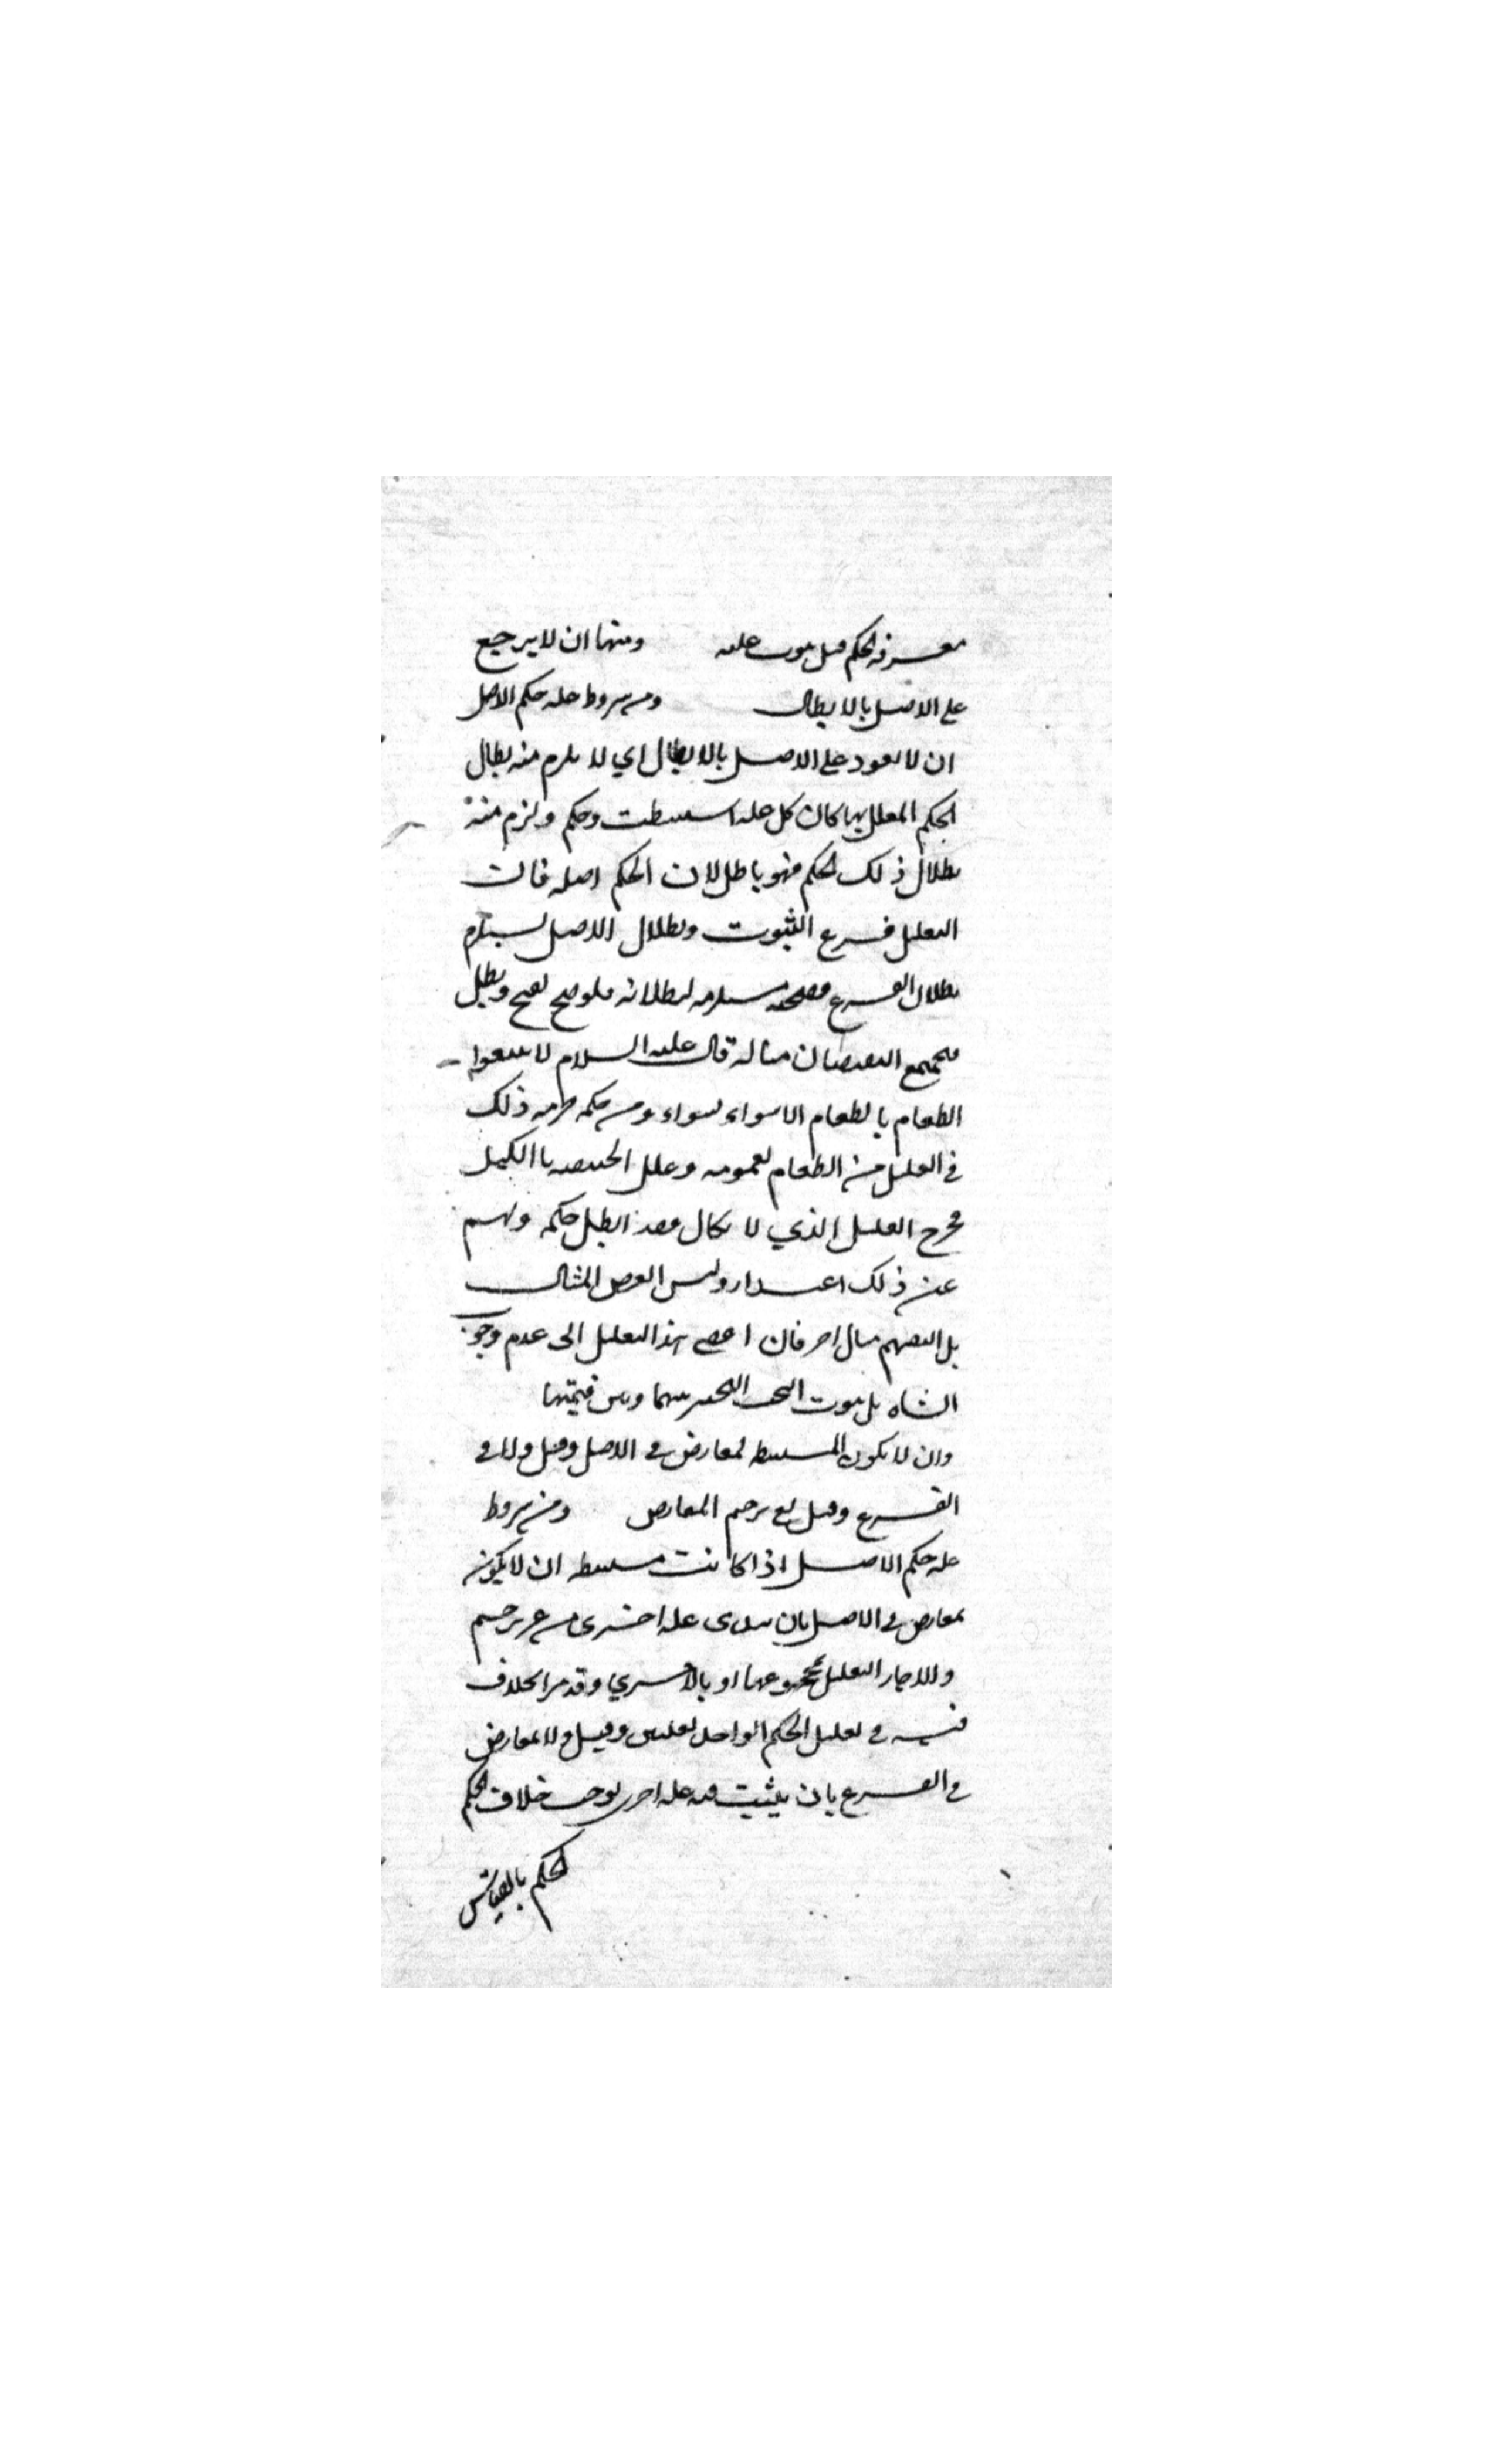 معرفة الحكم قبل ثبوت علته ومنها ان لا يرجع
على الاصل بالابطال ومن شروط علة حكم الاصل
ان لا تعود على الاصل بالابطال اي لا يلزم منه بطال
الحكم المعلل بها كان كل علة استنبطت وحكم ولزم منه
بطلال ذلك الحكم فهو باطل لان الحكم اصله فان
التعليل فرع الثبوت وبطلال الاصل يستلزم
بطلال الفرع فصحته مستلزمة لبطلانه فلو صح لصح وبطل
فيجتمع النقيضان مثاله قال عليه السلام لا تبيعوا
الطعام بالطعام الا سواء بسواء ومن حكمه حرمة ذلك
في القليل من الطعام لعمومه وعلل الحنفية بالكيل
فخرج القليل الذي لا يكال فقد ابطل حكمه ولهم
عن ذلك اعتذار وليس الغرض المثال
بل التفهيم مثال اخر فان افضى هذا التعليل الى عدم وجوب
الشاة بل ثبوت التخيير بينها وبين قيمتها
وان لا تكون المستنبطة لمعارض في الاصل وقيل ولا في
الفرع وقيل مع ترجح المعارض ومن شروط
علة حكم الاصل اذا كانت مستنبطة ان لا يكون
بمعارض في الاصل بان يبدى علة اخرى من غير ترجيح
والا جاز التعليل بمجموعهما او بالاخرى وقد مر الخلاف
فيه في تعليل الحكم الواحد بعلتين وقيل ولا بمعارض
في الفرع بان يثبت فيه علة اخرى توجب خلاف الحكم
الحكم بالقياس